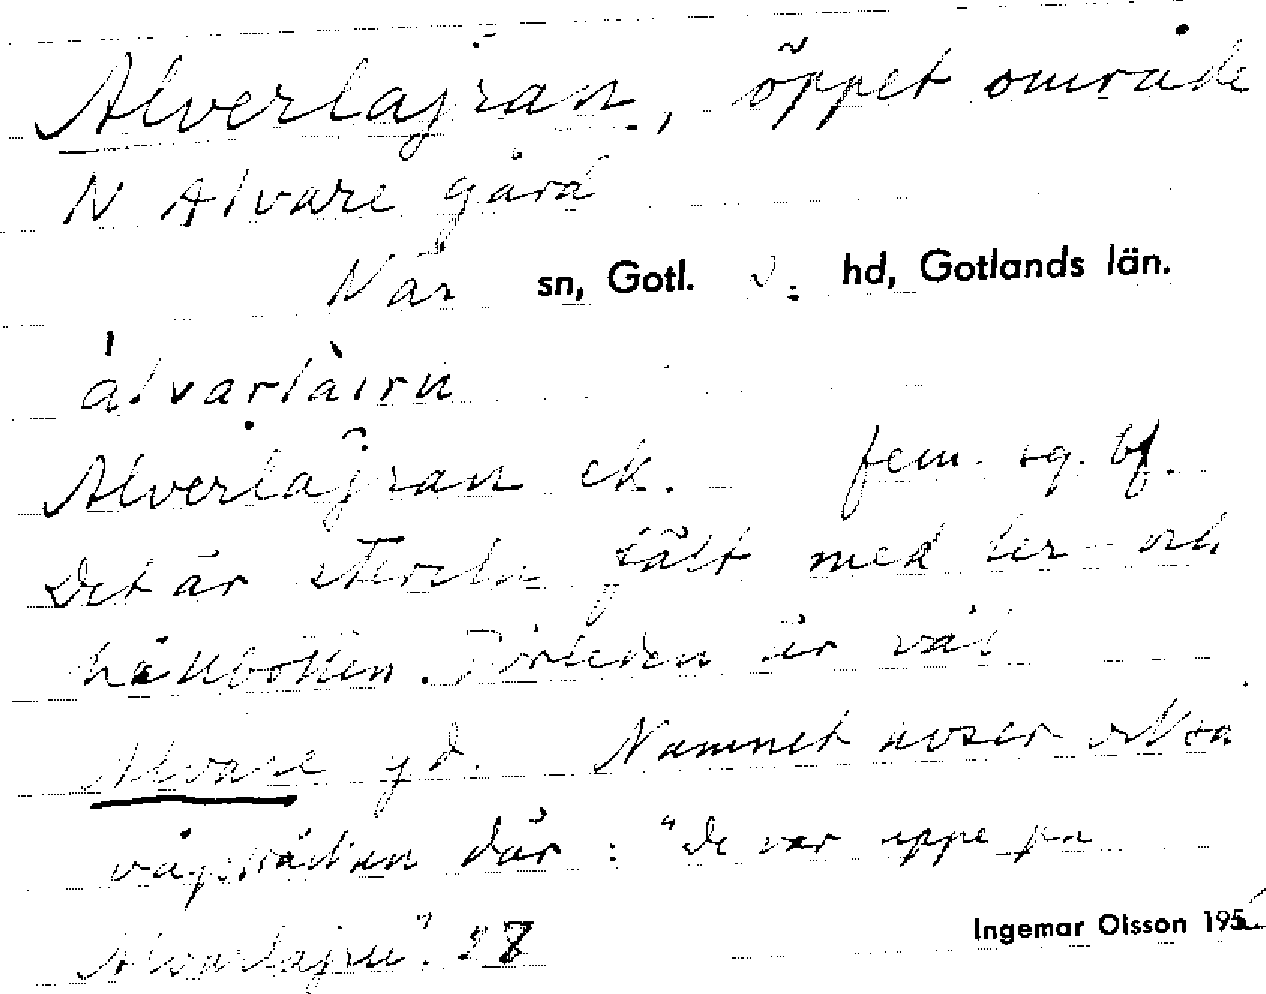 Alverlajran, öppet område
N Alvare gård
När sn, Gotl. s. hd, Gotlands län.
álvarlàirn
Alverlajran ek. fem. sg. bf.
Det är fält med ler- och
hällbotten. Förleden är väl
Alvare gd. Namnet avser också
vägsträckan där: "de var uppe pa
Alvarlajru". 27
Ingemar Olsson 195